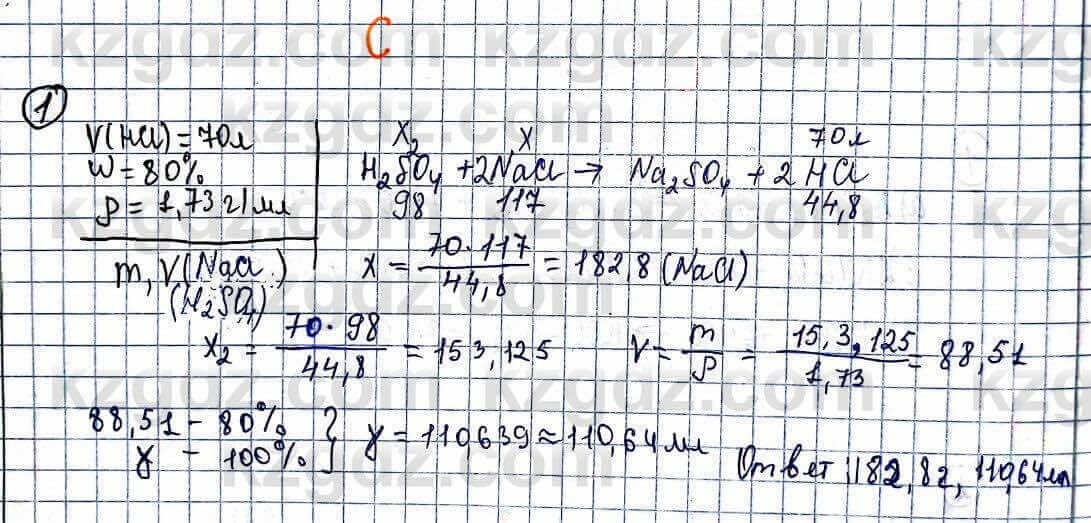 C
1
V(HCl) = 70л
W = 80%
ρ = 1,73 г/мл
m, V(NaCl)
(H₂SO₄)
x₂ x 70л
H₂SO₄ + 2NaCl → Na₂SO₄ + 2HCl
98 117 44,8
x = 70·117 / 44,8 = 182,8 (NaCl)
x₂ = 70·98 / 44,8 = 153,125 V = m/ρ = 15,3,125 / 1,73 = 88,51
88,51 – 80%
y – 100% } y = 110,639 ≈ 110,64 мл
Ответ 182,8г, 110,64мл
kzgdz.com